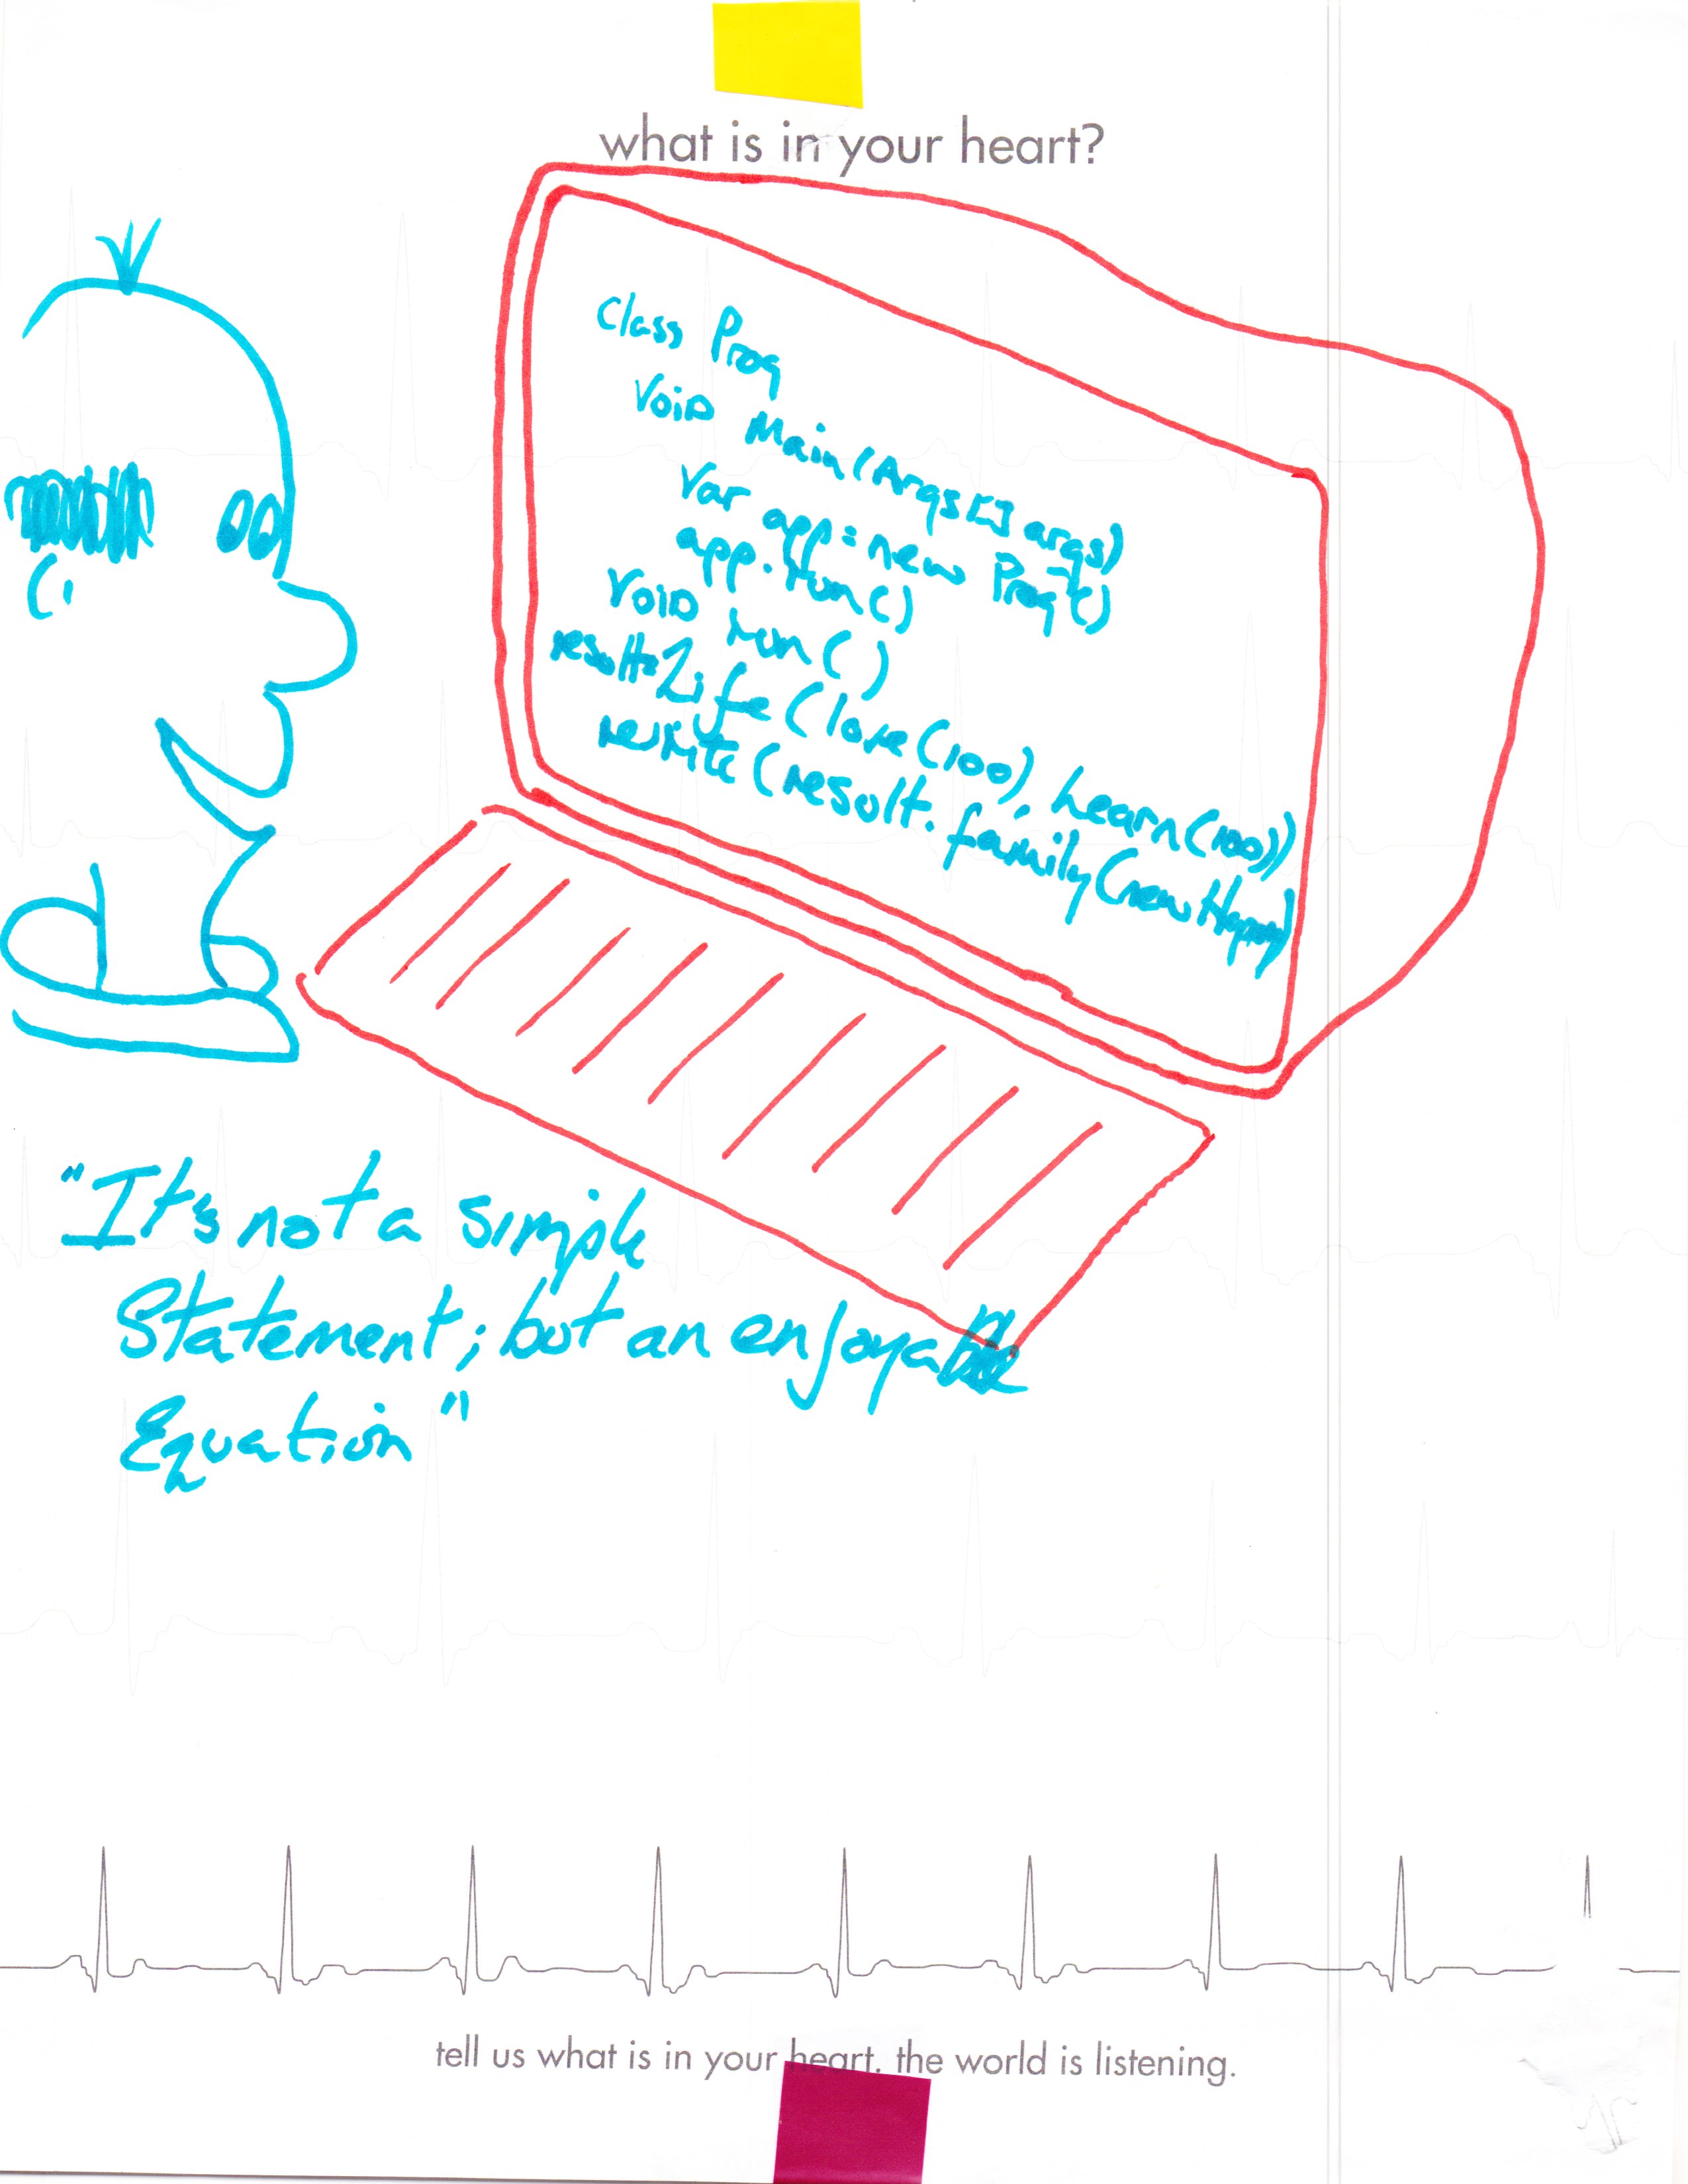 what is in your heart?
Class Prog
Void Main(Args[] args)
Var app = new Prog()
app.run()
Void run()
result=Life(love(100), Learn(100))
(result.family(new Happy)
"It's not a simple
Statement; but an enjoyable
Equation"
tell us what is in your heart. the world is listening.